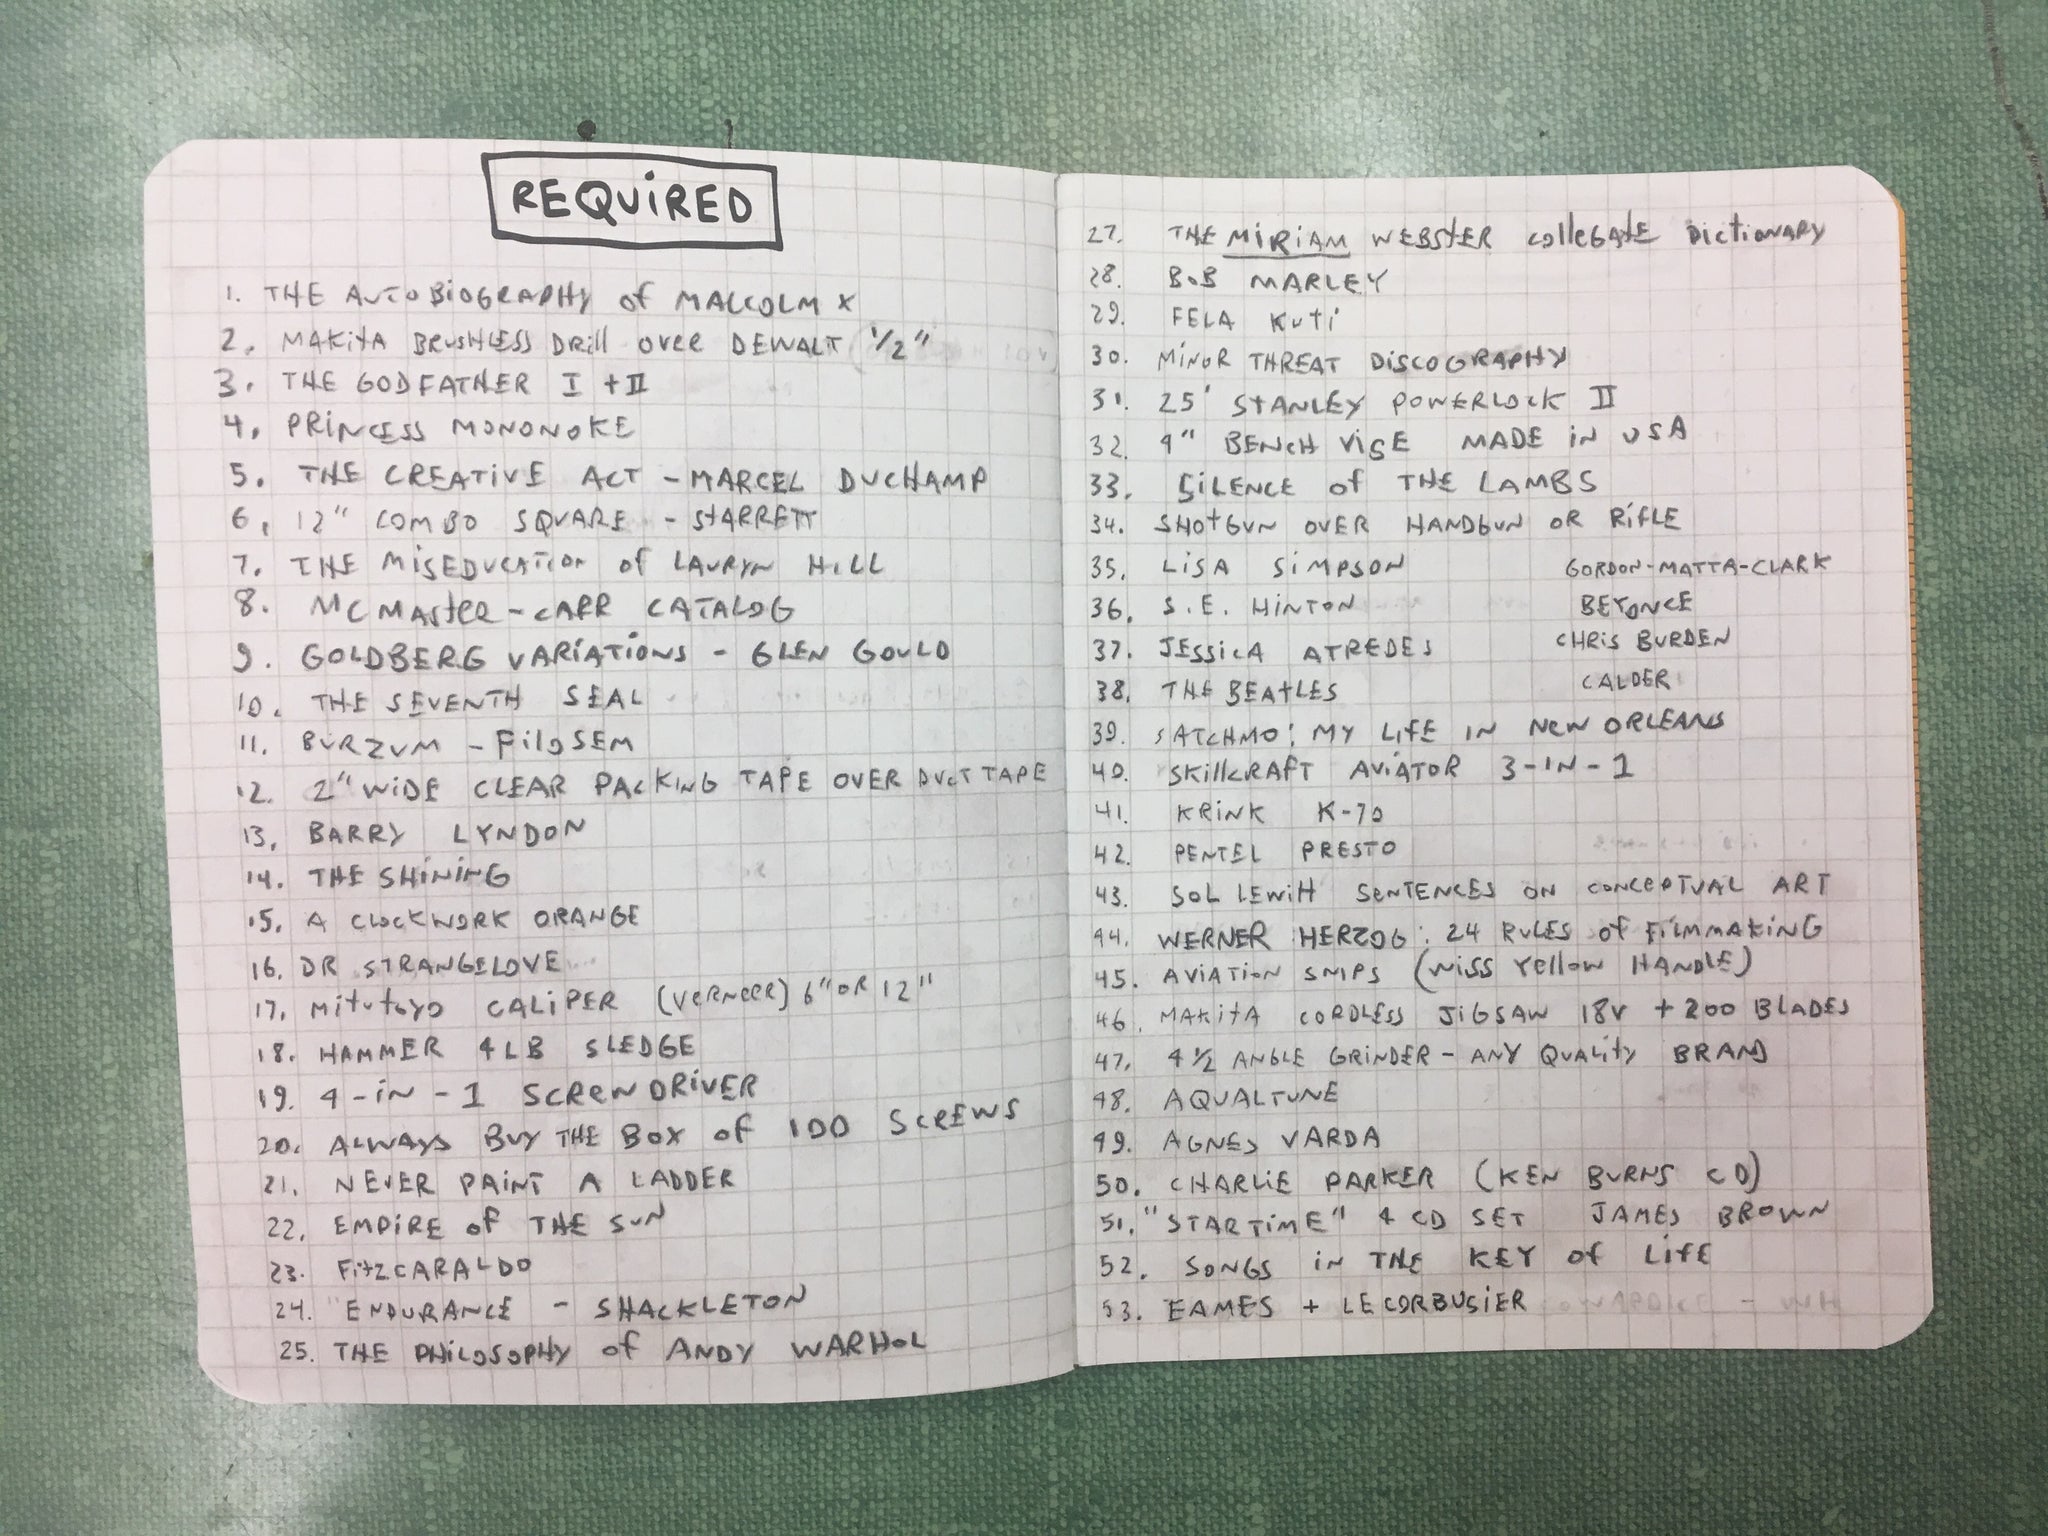 REQUiRED
1. THE AUTOBIOGRAPHY of MALCOLM X
2. MAKITA BRUSHLESS Drill over DEWALT 1/2"
3. THE GODFATHER I + II
4. PRINCESS MONONOKE
5. THE CREATIVE ACT - MARCEL DUCHAMP
6. 12" COMBO SQUARE - STARRETT
7. THE MISEDUCATION of LAURYN HILL
8. MCMASTER-CARR CATALOG
9. GOLDBERG VARIATIONS - GLEN GOULD
10. THE SEVENTH SEAL
11. BURZUM - FILOSEM
12. 2" WIDE CLEAR PACKING TAPE OVER DUCT TAPE
13. BARRY LYNDON
14. THE SHINING
15. A CLOCKWORK ORANGE
16. DR STRANGELOVE
17. Mitutoyo CALIPER (VERNEER) 6" OR 12"
18. HAMMER 4 LB SLEDGE
19. 4-IN-1 SCREWDRIVER
20. ALWAYS BUY THE BOX of 100 SCREWS
21. NEVER PAINT A LADDER
22. EMPIRE of THE SUN
23. FITZCARALDO
24. ENDURANCE - SHACKLETON
25. THE PHILOSOPHY of ANDY WARHOL
27. THE MIRIAM WEBSTER COLLEGATE DICTIONARY
28. BOB MARLEY
29. FELA KUTI
30. MINOR THREAT DISCOGRAPHY
31. 25' STANLEY POWERLOCK II
32. 4" BENCH VISE MADE IN USA
33. SILENCE of THE LAMBS
34. SHOTGUN OVER HANDGUN OR RIFLE
35. LISA SIMPSON GORDON-MATTA-CLARK
36. S.E. HINTON BEYONCE
37. JESSICA ATREDES CHRIS BURDEN
38. THE BEATLES CALDER
39. SATCHMO: MY LIFE IN NEW ORLEANS
40. SKILLCRAFT AVIATOR 3-IN-1
41. KRINK K-70
42. PENTEL PRESTO
43. SOL LEWIH SENTENCES ON CONCEPTUAL ART
44. WERNER HERZOG: 24 RULES of FILMMAKING
45. AVIATION SNIPS (WISS YELLOW HANDLE)
46. MAKITA CORDLESS JIGSAW 18V + 200 BLADES
47. 4 1/2 ANGLE GRINDER - ANY QUALITY BRAND
48. AQUALTUNE
49. AGNES VARDA
50. CHARLIE PARKER (KEN BURNS CD)
51. "STARTIME" 4 CD SET JAMES BROWN
52. SONGS IN THE KEY of LIFE
53. EAMES + LE CORBUSIER